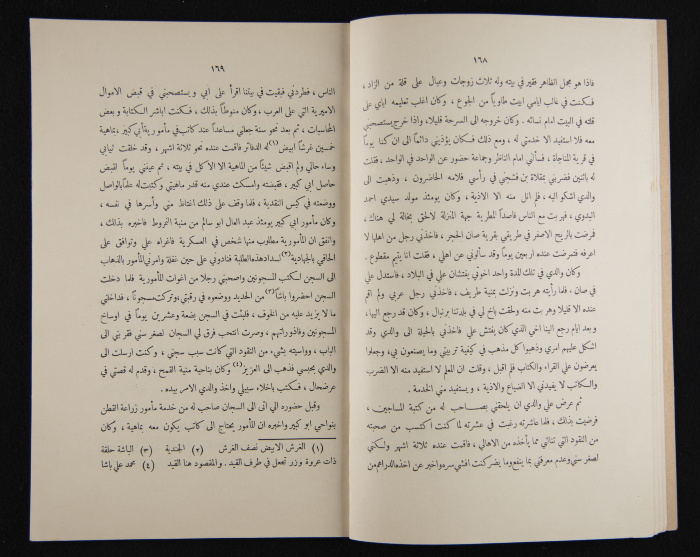 ١٦٨
فاذا هو مجمل الظاهر فقير في بيته وله ثلاث زوجات وعيال على قلة من الزاد ،
فكنت في غالب ايامي ابيت طاوياً من الجوع ، وكان اغلب تعليمه اياي على
قلته في البيت امام نسائه . وكان خروجه الى السرحة قليلا ، واذا خرج يستصحبني
معه فلا استفيد الا خدمتي له ، ومع ذلك فكان يؤذيني دائماً الى ان كنا يوماً
في قرية المناجاة ، فسألني امام الناظر وجماعة حضور عن الواحد في الواحد ، فقلت
له باثنين فضربني بمقلاة بن فشجني في رأسي فلامه الحاضرون ، وذهبت الى
والدي اشكو اليه ، فلم انل منه الا الاذية ، وكان يومئذ مولد سيدي احمد
البدوي ، فهربت مع الناس قاصداً المطرية جهة المنزلة لالحق بخالة لي هناك ،
فمرضت بالريح الاصفر في طريقي بقرية صان الحجر ، فاخذني رجل من اهلها لا
اعرفه فتمرضت عنده اربعين يوماً وقد سألوني عن اهلي ، فقلت انا يتيم مقطوع .
وكان والدي في تلك المدة واحد اخوتي يفتشان علي في البلاد ، فاستدل علي
في صان ، فلما رأيته هربت ونزلت بمنية طريف ، فاخذني رجل عربي ولم اقم
عنده الا قليلا وهربت منه ولحقت باخ لي في بلدتنا برنبال ، وكان قد رجع اليها ،
وبعد ايام رجع الينا اخي الذي كان يفتش علي فاخذني بالحيلة الى والدي وقد
اشكل عليهم امري وذهبوا كل مذهب في كيفية تربيتي وما يصنعون في ، وجعلوا
يعرضون علي القراء والكتاب فلم اقبل ، وقلت ان المعلم لا استفيد منه الا الضرب
والكاتب لا يفيدني الا الضياع والاذية ، ويستفيد مني الخدمة .
ثم عرض علي والدي ان يلحقني بصاحب له من كتبة المساحين ،
فرضيت بذلك ، فلما عاشرته رغبت في عشرته لما كنت اكتسب من صحبته
من النقود التي تنالني مما يأخذه من الاهالي ، فاقمت عنده ثلاثة اشهر ولكني
لصغر سني وعدم معرفتي بما ينفع وما يضر كنت افشي سره واخبر عن اخذه الدراهم من
١٦٩
الناس ، فطردني فبقيت في بيتنا اقرأ على ابي ويستصحبني في قبض الاموال
الاميرية التي على العرب ، وكان منوطاً بذلك ، فكنت اباشر الكتابة وبعض
المحاسبات ، ثم بعد نحو سنة جعلني مساعداً عند كاتب في مأمورية أبي كبير ، بماهية
خمسين غرشاً ابيض(١) له الدفاتر فاقمت عنده نحو ثلاثة اشهر ، وقد خلقت ثيابي
وساء حالي ولم اقبض شيئاً من الماهية الا الاكل في بيته ، ثم عينني يوماً لقبض
حاصل ابي كبير ، فقبضته وامسكت عندي منه قدر ماهيتي وكتبت له علماً بالواصل
ووضعته في كيس النقدية ، فلما وقف على ذلك اغتاظ مني وأسرها في نفسه ،
وكان مأمور ابي كبير يومئذ عبد العال ابو سالم من منية النمروط فاخبره بذلك ،
واتفق ان المأمورية مطلوب منها شخص في العسكرية فاغراه علي وتوافق على
الحاقي بالجهادية(٢) لسداد هذه الطلبة فنادوني على حين غفلة وامرني المأمور بالذهاب
الى السجن لكتب المسجونين واصحبني رجلا من اغوات المأمورية فلما دخلت
السجن احضروا باشاً(٣) من الحديد ووضعوه في رقبتي ، وتركت مسجوناً ، فداخلني
ما لا يزيد عليه من الخوف ، فلبثت في السجن بضعة وعشرين يوماً في اوساخ
المسجونين وقاذوراتهم ، وصرت انتحب فرق لي السجان لصغر سني فقربني الى
الباب ، وواسيته بشيء من النقود التي كانت سبب سجني ، وكنت ارسلت الى
والدي بحبسي فذهب الى العزيز(٤) وكان بناحية منية القمح ، وقدم له قصتي في
عرضحال ، فكتب باخلاء سبيلي واخذ والدي الامر بيده .
وقبل حضوره الي اتى الى السجان صاحب له من خدمة مأمور زراعة القطن
بنواحي ابو كبير واخبره ان المأمور يحتاج الى كاتب يكون معه بماهية ، وكان
(١) الغرش الابيض نصف الغرش (٢) الجندية (٣) الباشة حلقة
ذات عروة وزر تجعل في طرف القيد . والمقصود هنا القيد (٤) محمد علي باشا